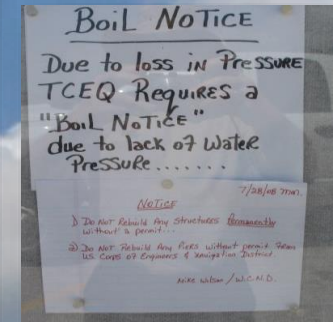 BOIL NOTICE
Due to loss in PRESSURE
TCEQ REQUIRES a
"BOIL NOTICE"
due to lack of Water
PRESSURE.......
7/28/08
NOTICE
1) Do Not Rebuild Any Structures Permanently
without a permit...
2) Do Not Rebuild Any Piers without permit from
US Corps of Engineers & Navigation District
Mike Wilson / W.C.N.D.